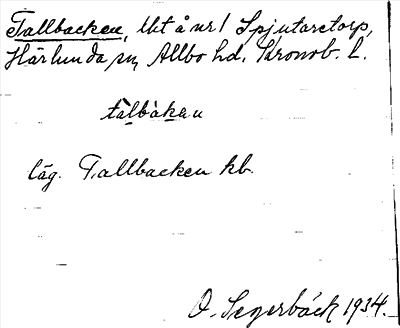 Tallbacken, lht å nr 1 Spjutaretorp,
Härlunda sn, Allbo hd, Kronob. l.
tàlbàkan
läg. Tallbacken kb.
O. Segerbäck 1934.